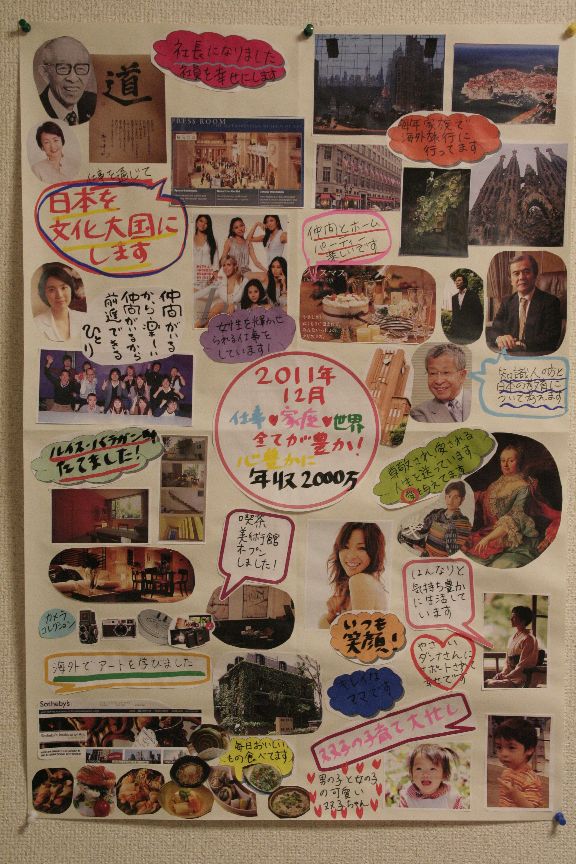 社長になりました
社員を幸せにします
道
仕事を通じて
日本を
文化大国に
します
PRESS ROOM
毎年家族で
海外旅行に
行ってます
仲間とホーム
パーティー
楽しいです
クリスマス
女性を輝かせ
られる仕事を
しています!
仲間がいる
から楽しい
仲間がいるから
前進できる
ひとり
知識人の方と
日本の教育に
ついて考えます
2011年
12月
仕事♥家庭♥世界
全てが豊か!
心豊かに
年収2000万
ルイス・バラガン
建てました!
尊敬され愛される
人生を送っています
愛を与えてます
喫茶
美術館
オープン
しました!
はんなりと
気持ち豊か
に生活して
います
カメラ
コレクション
いつも
笑顔!
やさしい
ダンナさんに
サポートされて
幸せです
海外でアートを学びました
キレイな
ママです
Sotheby's
双子の子育て大忙し
毎日おいしい
もの食べてます
男の子と女の子
の可愛い
双子ちゃん